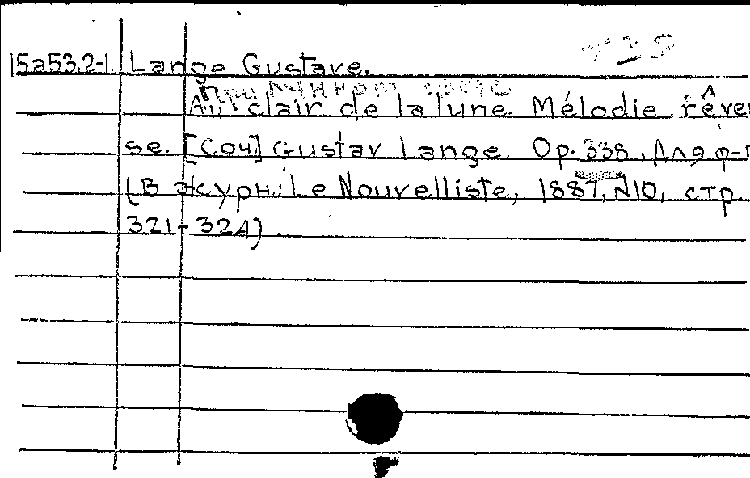 15a532-1 Lange Gustave.
Au clair de la lune. Mélodie rêveu
se. [Соч] Gustav Lange. Op. 338. Для ф-п
(В журн: Le Nouvelliste, 1887, N10, стр.
321-324)